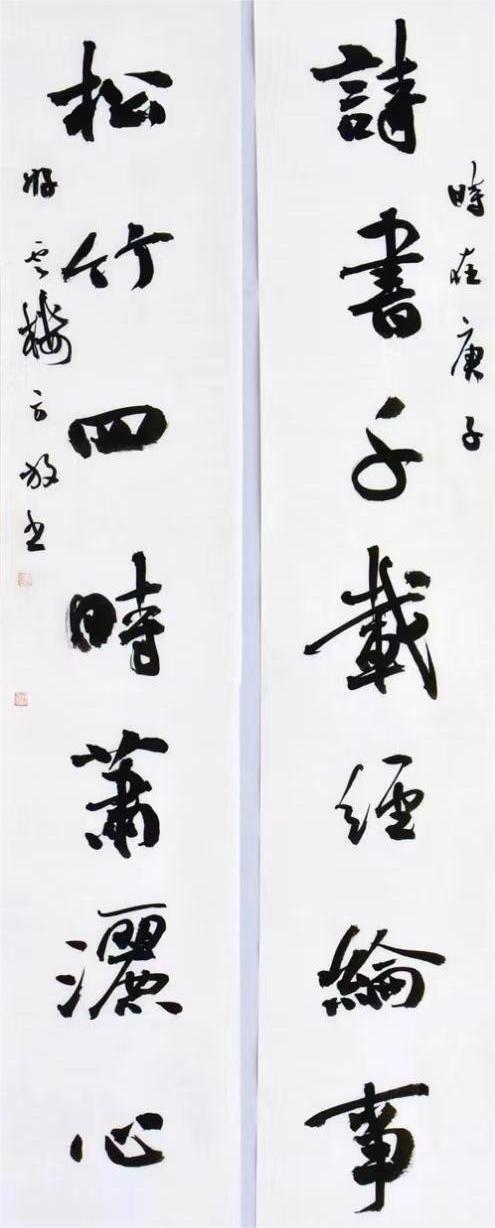 詩書千載經綸事
時在庚子
松竹四時蕭灑心
雲樓方放书